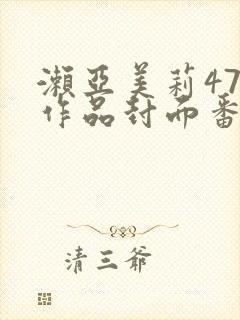 濑亚美莉47
作品封面番
清三爷